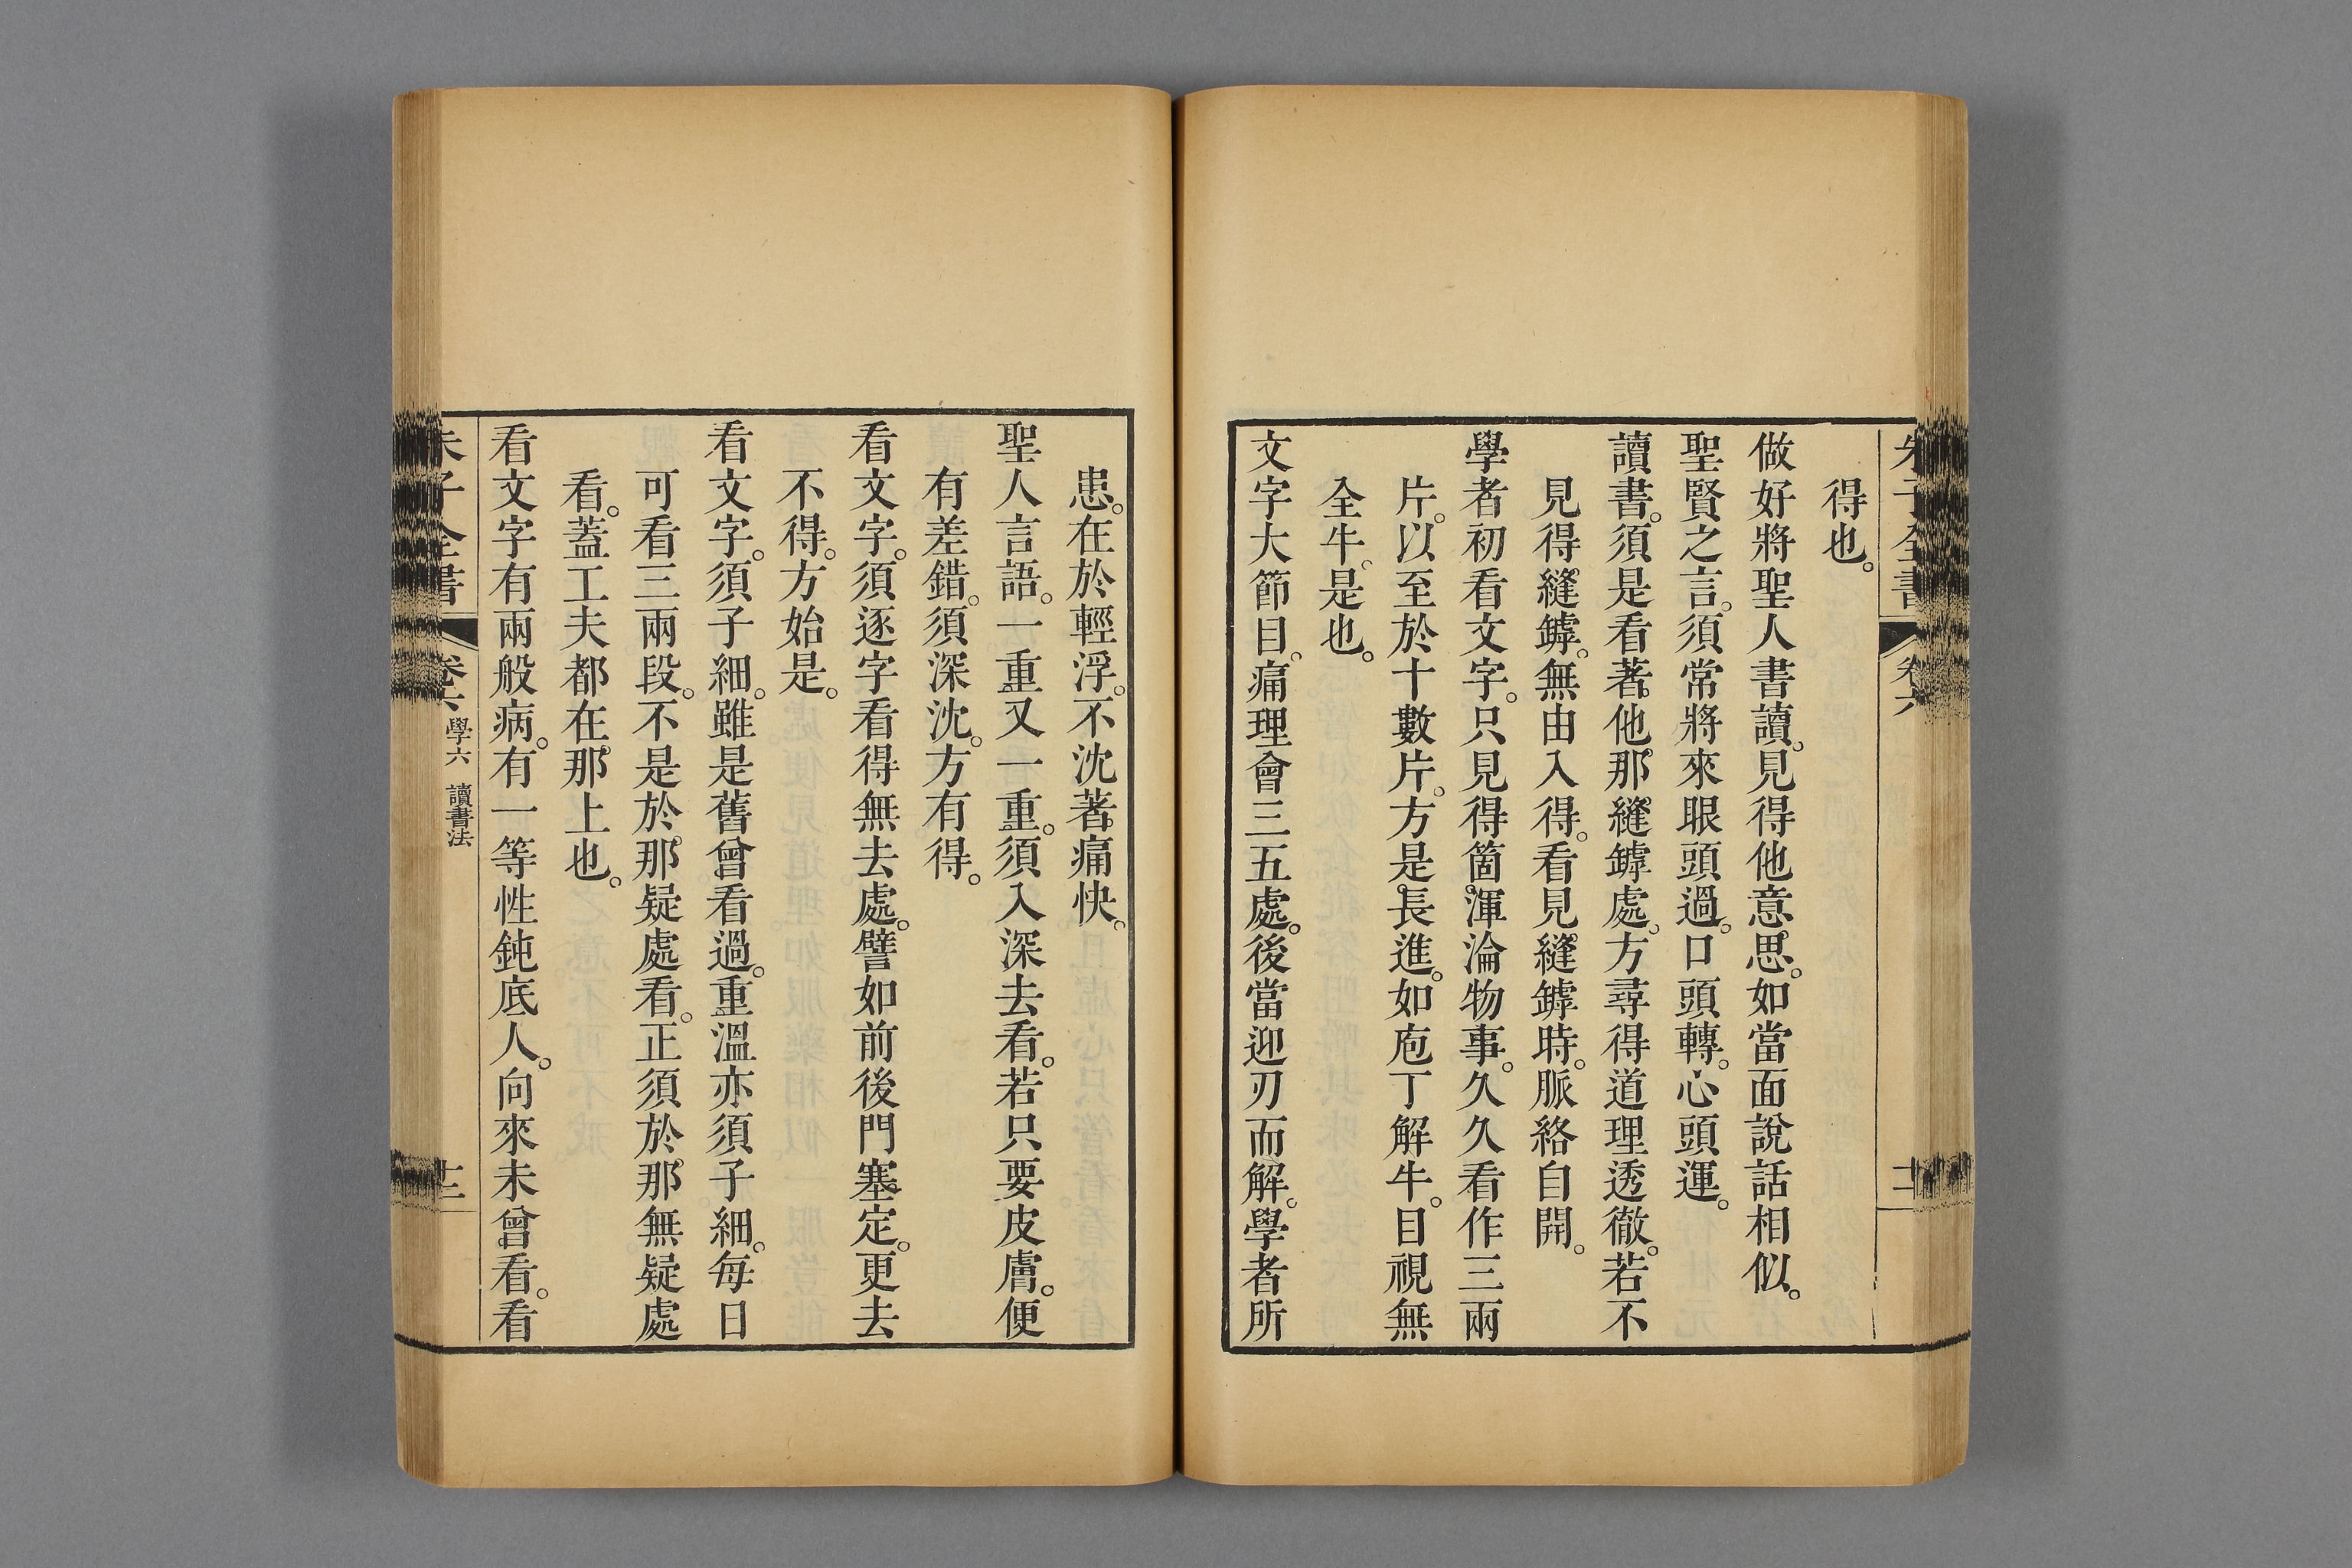 朱子全書 卷六 十二
得也。
做好將聖人書讀。見得他意思。如當面說話相似。
聖賢之言。須常將來眼頭過。口頭轉。心頭運。
讀書。須是看著他那縫罅處。方尋得道理透徹。若不
見得縫罅。無由入得。看見縫罅時。脈絡自開。
學者初看文字。只見得箇渾淪物事。久久看作三兩
片。以至於十數片。方是長進。如庖丁解牛。目視無
全牛。是也。
文字大節目。痛理會三五處。後當迎刃而解。學者所
患。在於輕浮。不沈著痛快。
聖人言語。一重又一重。須入深去看。若只要皮膚。便
有差錯。須深沈。方有得。
看文字。須逐字看得無去處。譬如前後門塞定。更去
不得。方始是。
看文字。須子細。雖是舊曾看過。重溫亦須子細。每日
可看三兩段。不是於那疑處看。正須於那無疑處
看。蓋工夫都在那上也。
看文字有兩般病。有一等性鈍底人。向來未曾看。看
朱子全書 卷六 學六 讀書法 十三